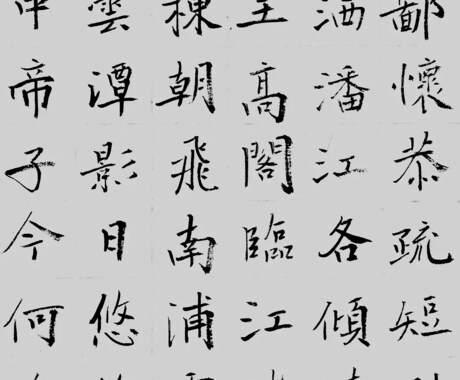 鄙懷恭疏短
洒潘江各傾
王高閣臨江
棟朝飛南浦
雲潭影日悠
中帝子今何